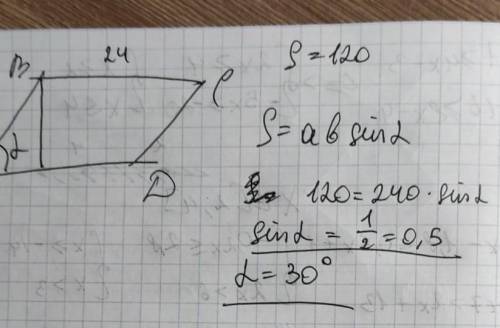 24
B
C
α
D
S = 120
S = a b sin α
120 = 240 · sin α
sin α = 1/2 = 0,5
α = 30°